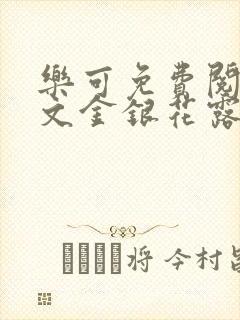 樂可免費閱
文金銀花露
将今村昌